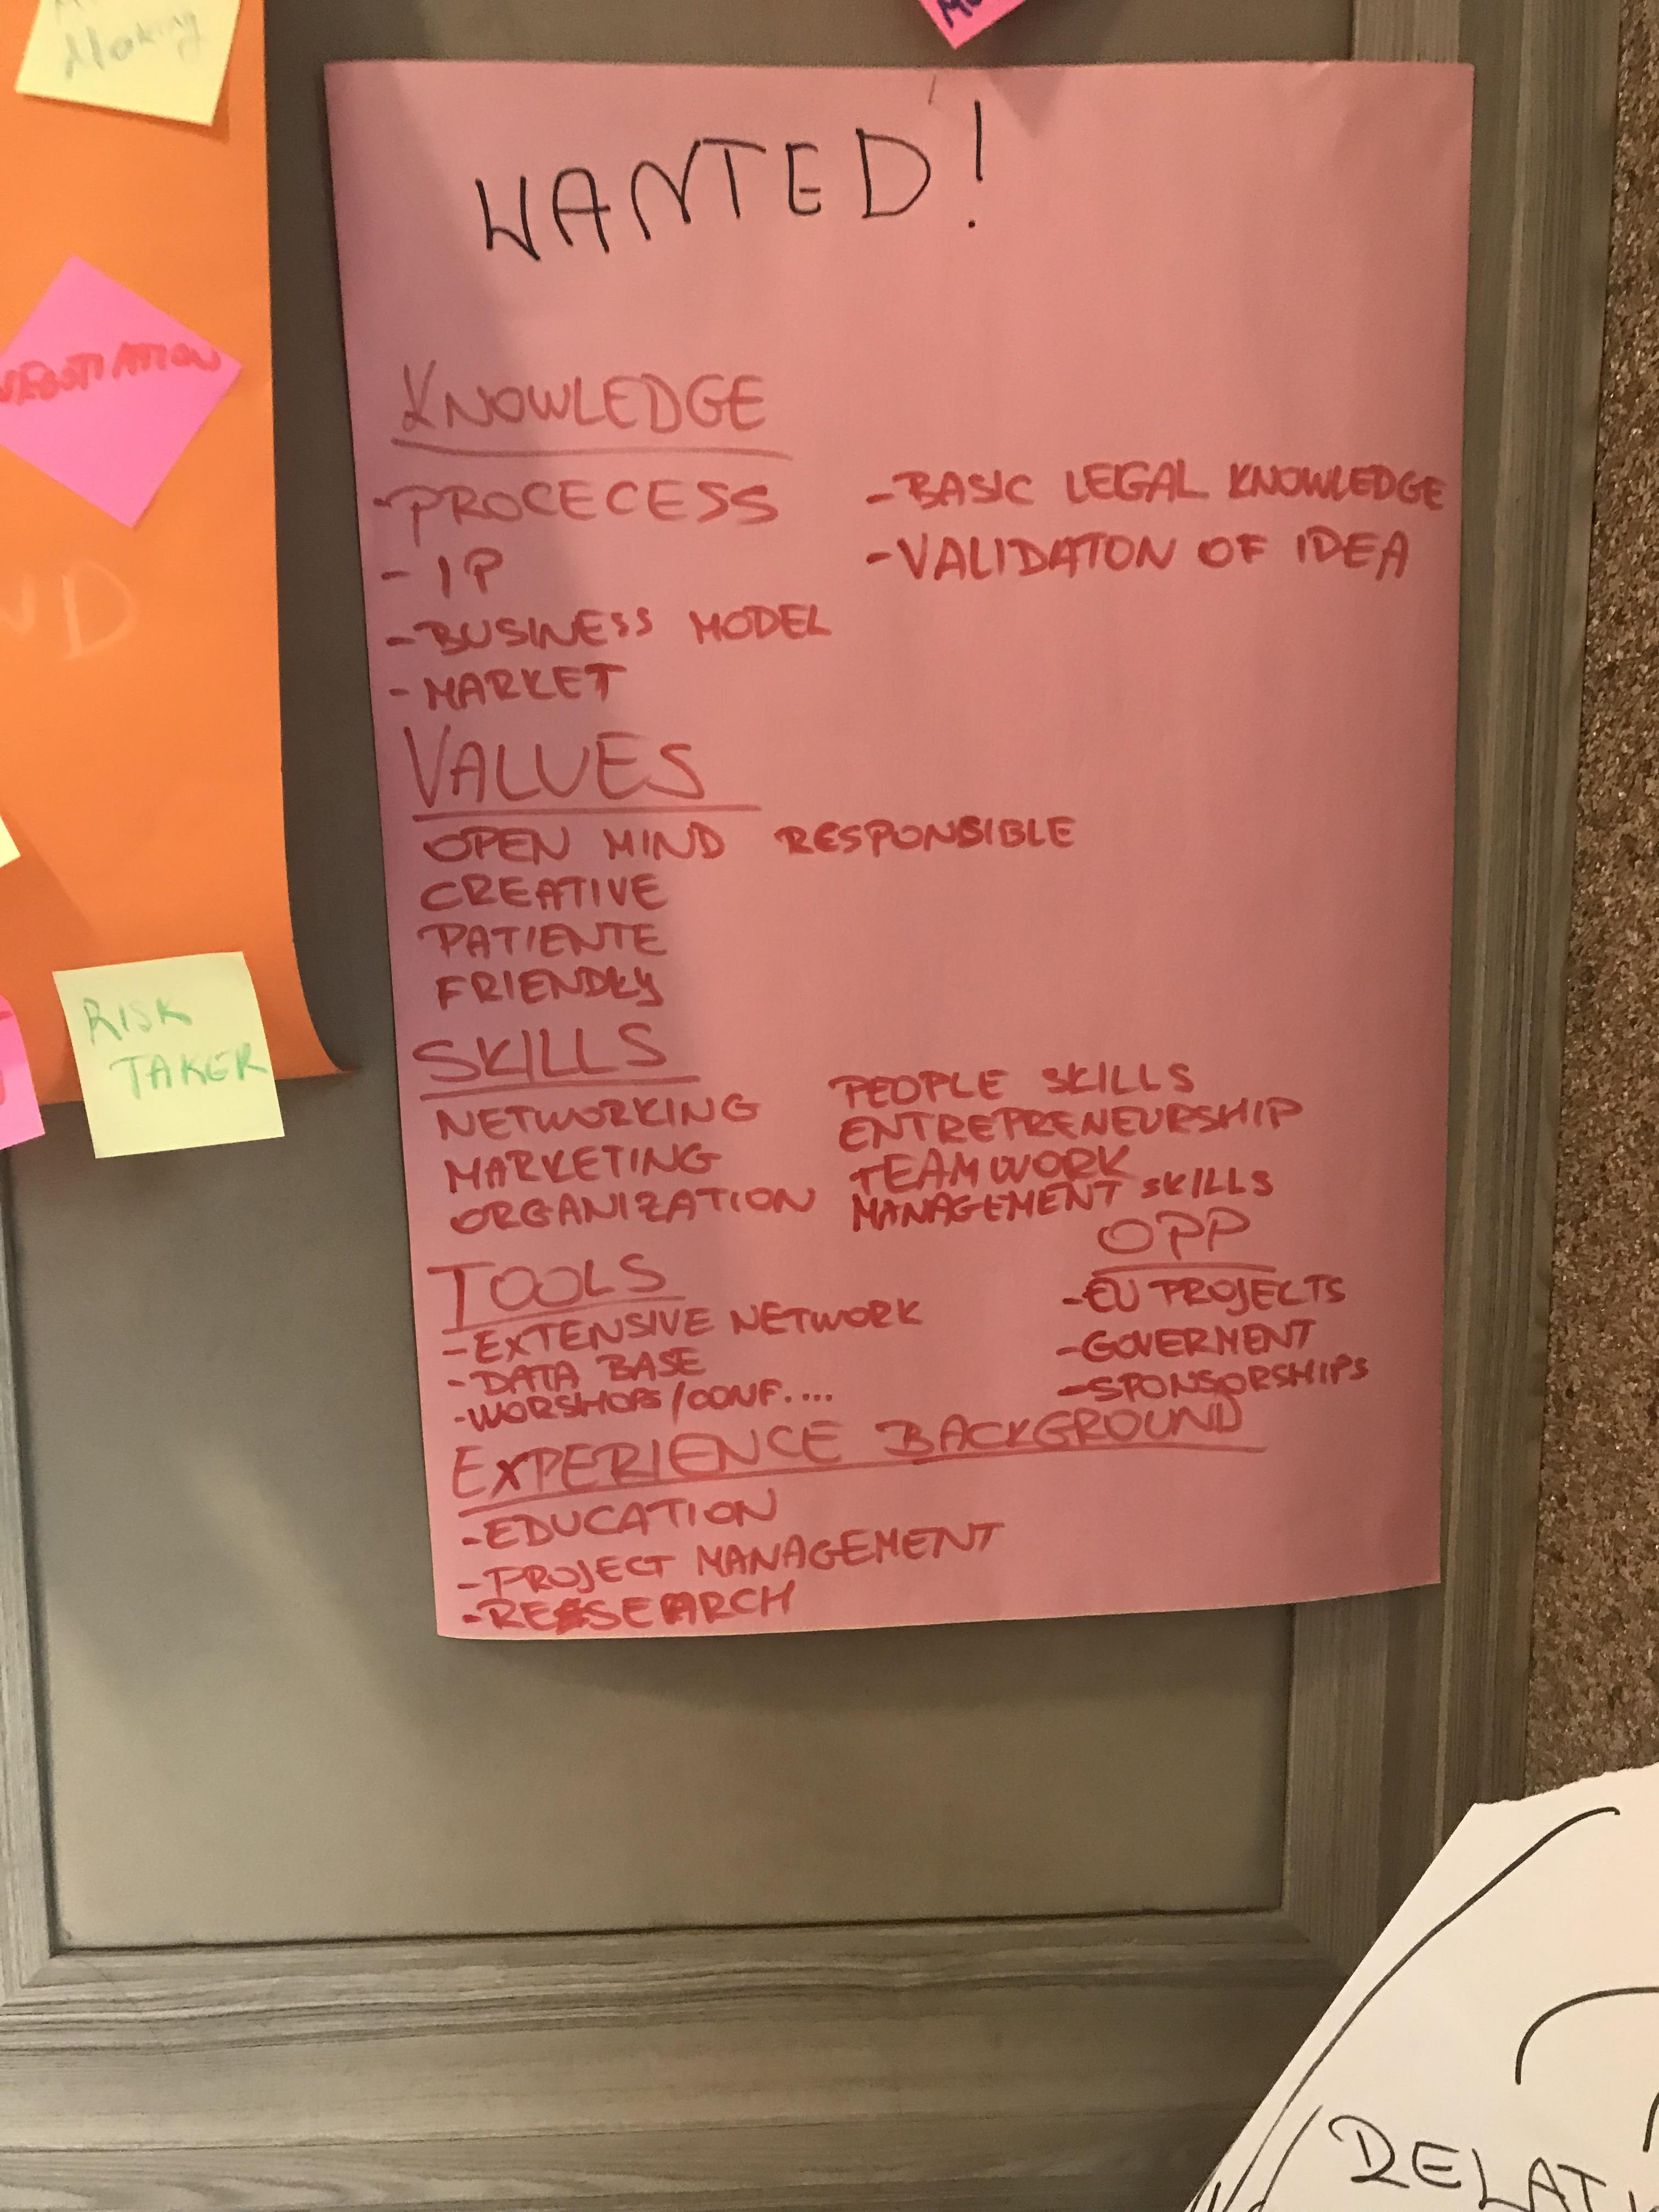 Making
NEGOTIATION
ND
RISK
TAKER
WANTED!
KNOWLEDGE
-PROCECESS
- IP
-BUSINESS MODEL
-MARKET
-BASIC LEGAL KNOWLEDGE
-VALIDATON OF IDEA
VALUES
OPEN MIND RESPONSIBLE
CREATIVE
PATIENTE
FRIENDLY
SKILLS
NETWORKING
MARKETING
ORGANIZATION
PEOPLE SKILLS
ENTREPRENEURSHIP
TEAMWORK
MANAGEMENT SKILLS
TOOLS
-EXTENSIVE NETWORK
-DATA BASE
-WORSHOPS/CONF....
OPP
-EU PROJECTS
-GOVERMENT
-SPONSORSHIPS
EXPERIENCE BACKGROUND
-EDUCATION
-PROJECT MANAGEMENT
-RESEARCH
RELAT